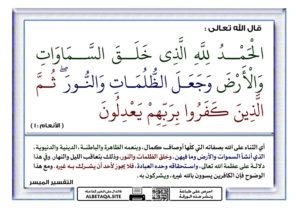 قال الله تعالى :
الْحَمْدُ لِلَّهِ الَّذِي خَلَقَ السَّمَاوَاتِ
وَالْأَرْضَ وَجَعَلَ الظُّلُمَاتِ وَالنُّورَ ۖ ثُمَّ
الَّذِينَ كَفَرُوا بِرَبِّهِمْ يَعْدِلُونَ
( الأنعام : ١ )
أي الثناء على الله بصفاته التي كلُّها أوصاف كمال، وبنعمه الظاهرة والباطنة، الدينية والدنيوية،
الذي أنشأ السموات والأرض وما فيهن، وخلق الظلمات والنور، وذلك بتعاقب الليل والنهار. وفي هذا
دلالة على عظمة الله تعالى، واستحقاقه وحده العبادة، فلا يجوز لأحد أن يشرك به غيره. ومع هذا
الوضوح فإن الكافرين يسوون بالله غيره، ويشركون به.
التفسير الميسر
ALBETAQA.SITE